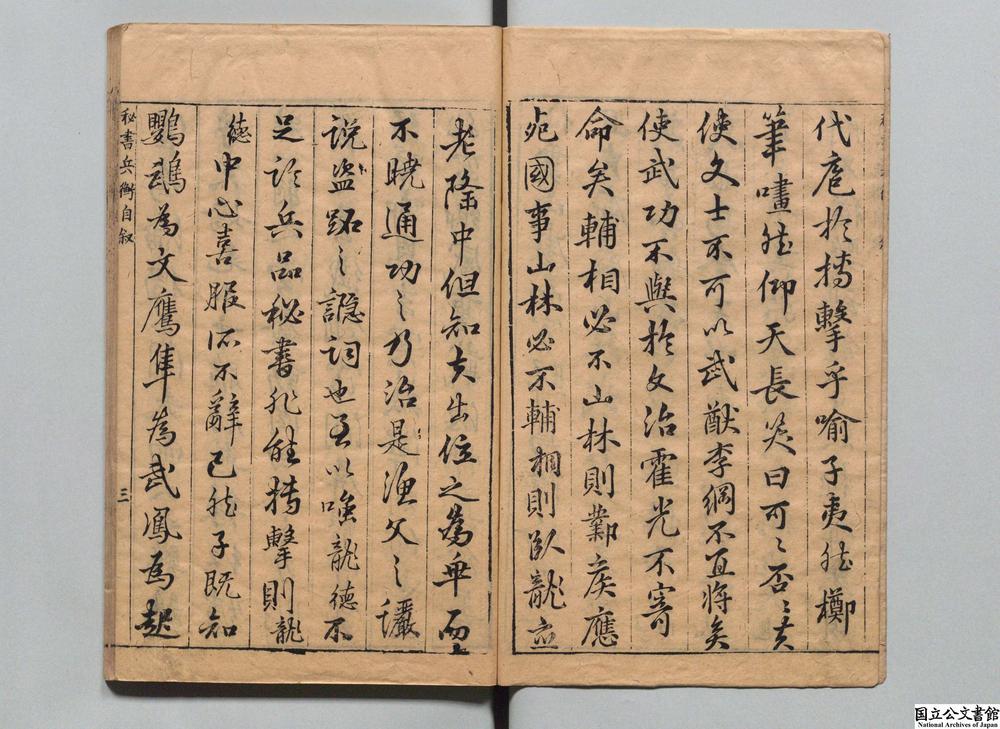 代庖於搏擊乎喻子夷然擲
筆嘯然仰天長笑曰可可否否
使文士不可以武猷李綱不宜將矣
使武功不與於文治霍光不寄
命矣輔相必不山林則酇侯應
宛國事山林必不輔相則臥龍
老隆中但知夫出位之為無而
不曉通功之乃治是漁父之
說盜跖之讔詞也吾以嗤龍德不
足於兵品秘書非能搏擊則龍
德中心喜服而不辭已然子既知
鸚鵡為文鷹隼為武鳳為
秘書兵衡自敘
三
国立公文書館
National Archives of Japan